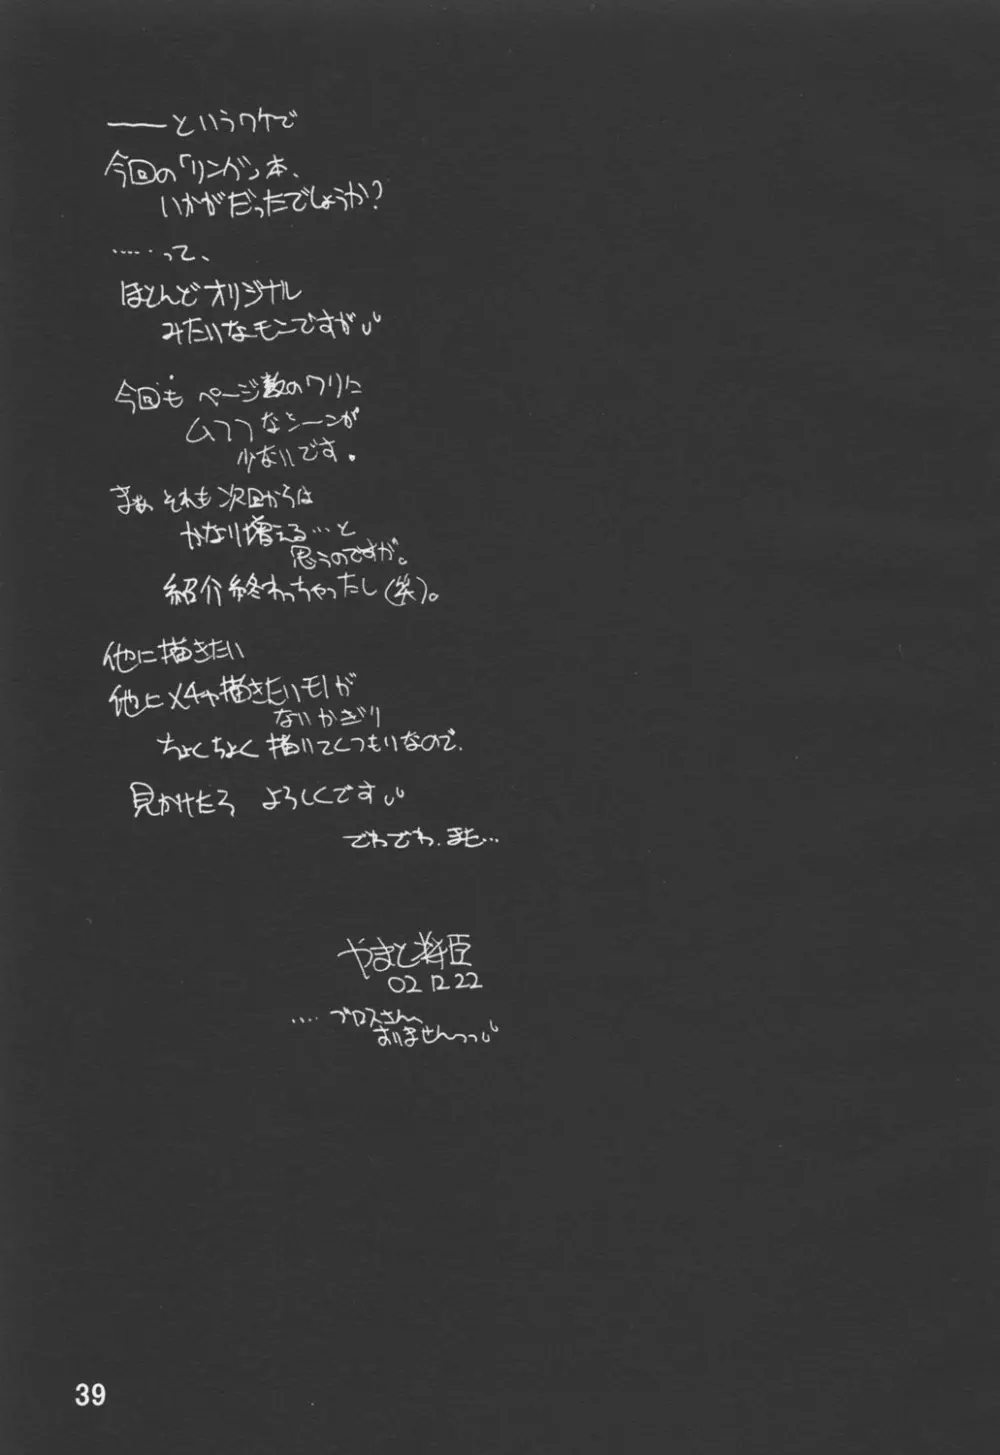 ――というワケで
今回の「リンガ」本、
いかがだったでしょうか?
……って、
ほとんどオリジナル
みたいなモンですが
今回も ページ数のワリに
ムフフなシーンが
少ないです。
まぁ それも次回からは
かなり増える…と
思うのですが。
紹介終わっちゃったし(笑)。
他に描きたい
他にメチャ描きたいモノが
ないかぎり
ちょくちょく描いてくつもりなので、
見かけたら よろしくです
でわでわ、また…
やまと
02 12 22
…. ブロスさん、
おりませんっっ
39